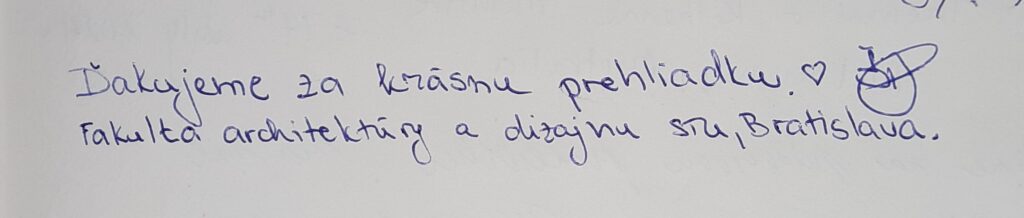 Ďakujeme za krásnu prehliadku. ♡
Fakulta architektúry a dizajnu STU, Bratislava.